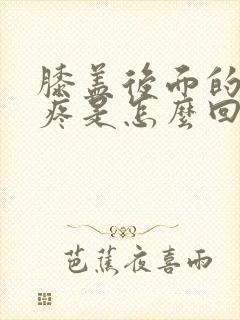 膝盖後面的
疼是怎麼回
芭蕉夜喜雨